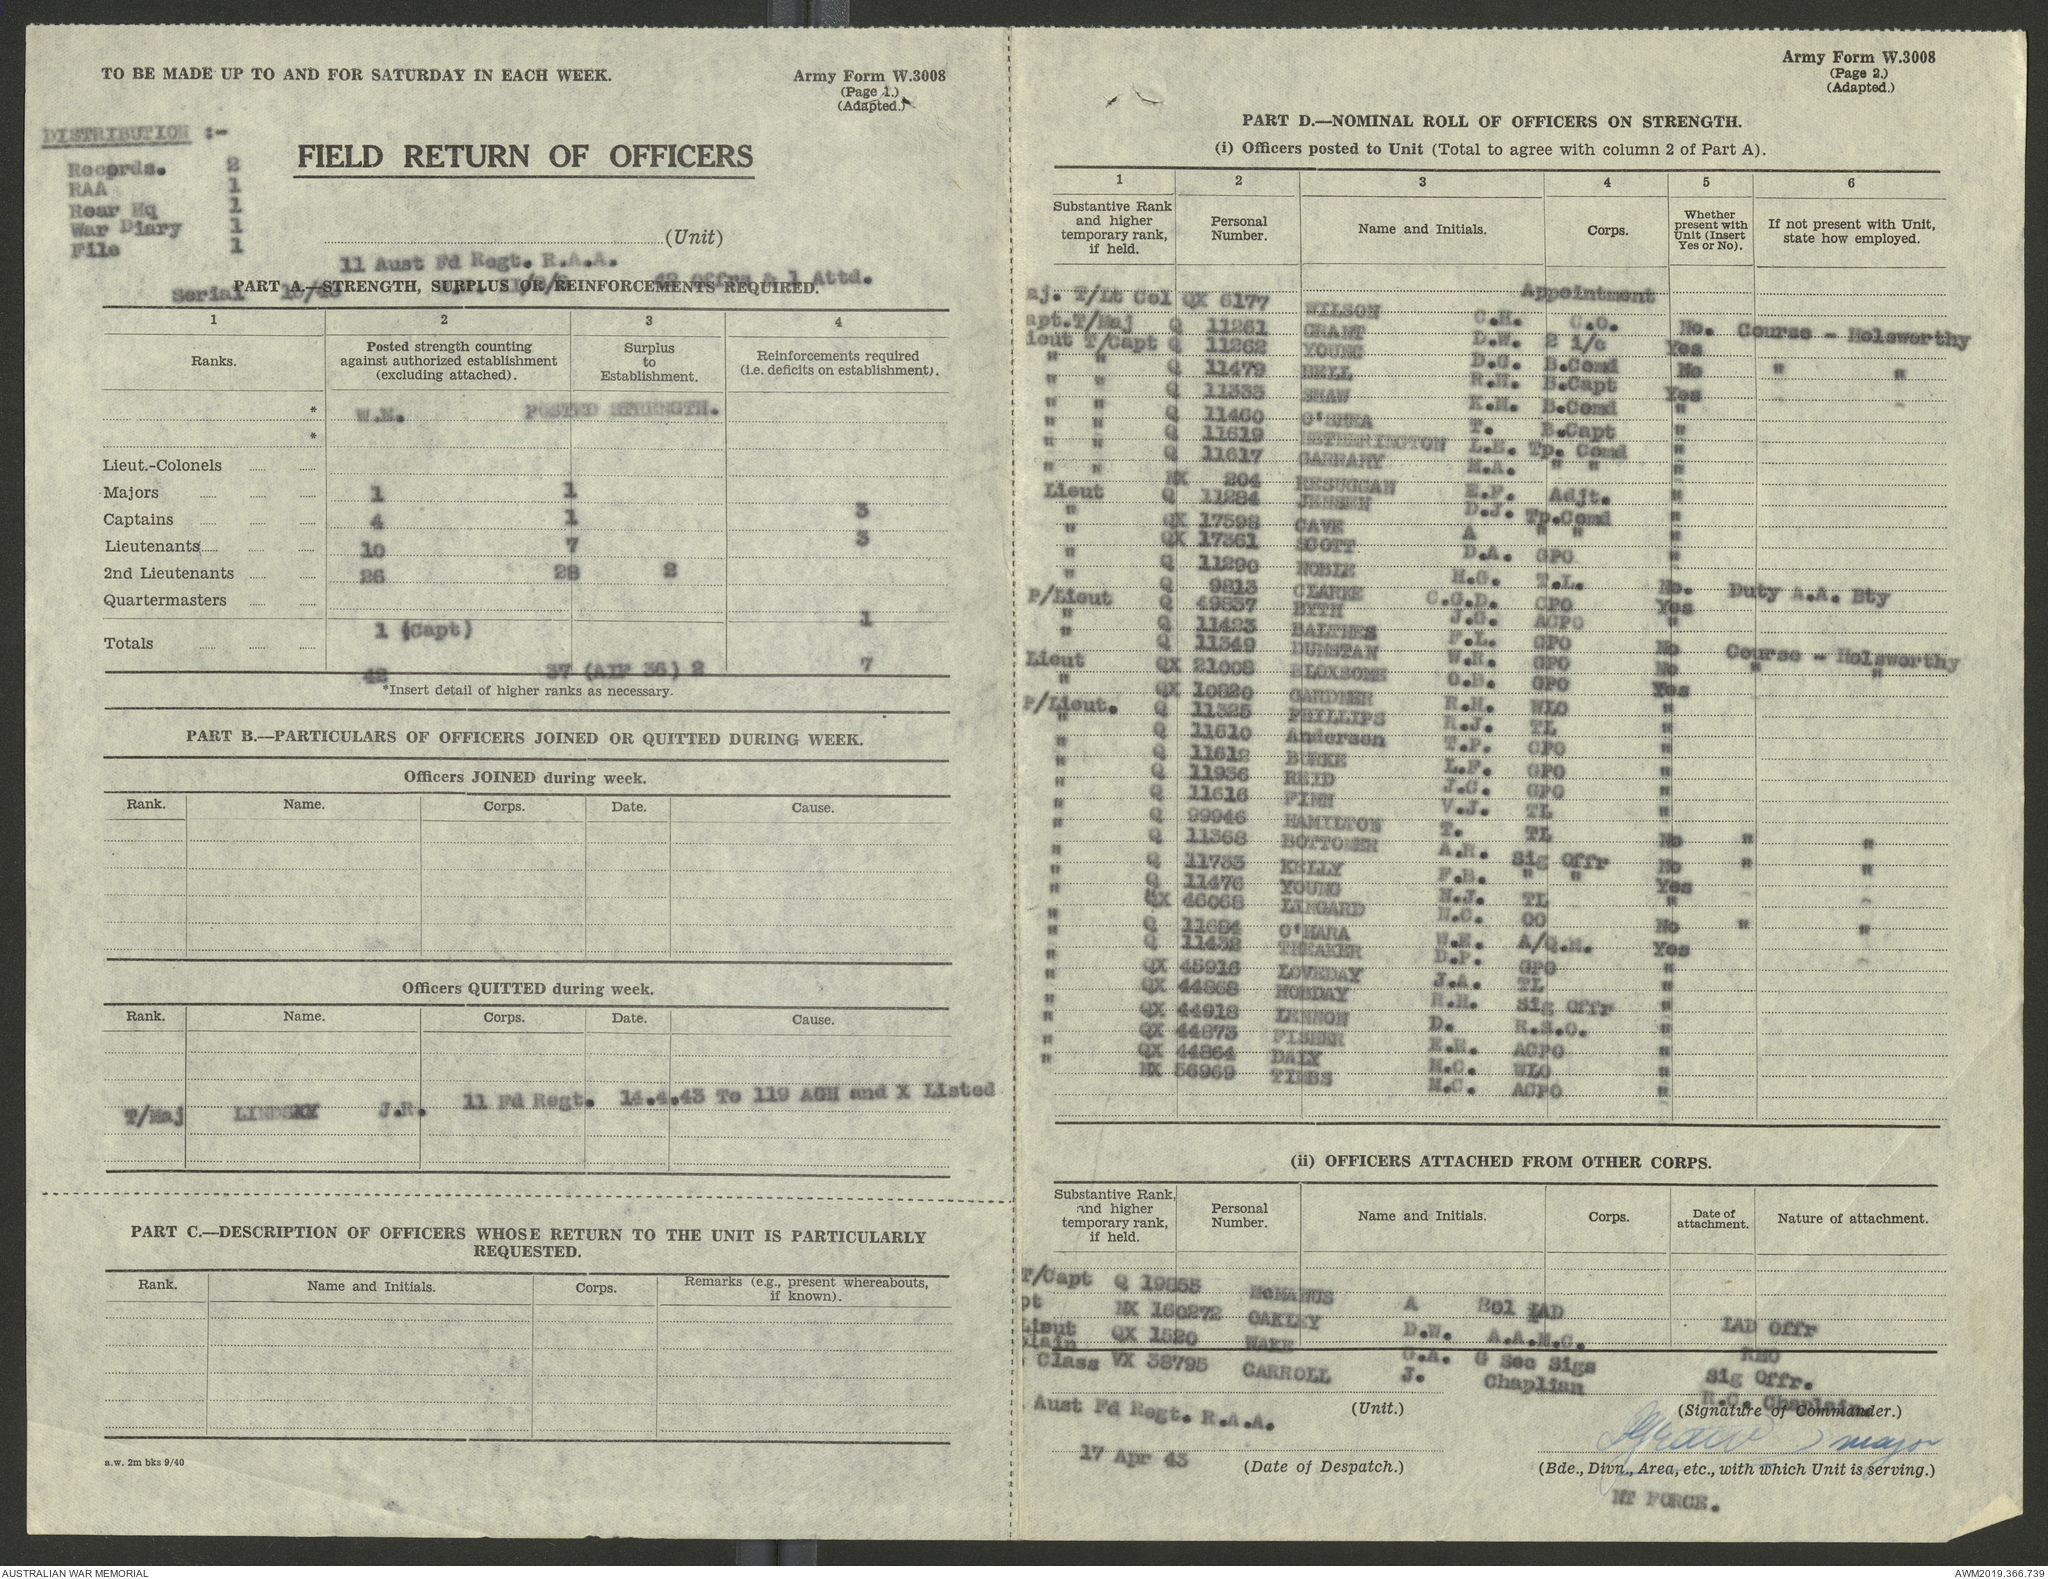 TO BE MADE UP TO AND FOR SATURDAY IN EACH WEEK.
Army Form W.3008
(Page 1.)
(Adapted.)
DISTRIBUTION :-
Records. 2
RAA 1
Rear Hq 1
War Diary 1
File 1
FIELD RETURN OF OFFICERS
(Unit)
11 Aust Fd Regt. R.A.A.
Serial 42 Offrs & 1 Attd.
PART A.—STRENGTH, SURPLUS OR REINFORCEMENTS REQUIRED.
1 2 3 4
Ranks. Posted strength counting against authorized establishment (excluding attached). Surplus to Establishment. Reinforcements required (i.e. deficits on establishment).
* W.E. POSTED STRENGTH.
*
Lieut.-Colonels
Majors 1 1
Captains 4 1 3
Lieutenants 10 7 3
2nd Lieutenants 26 28 2
Quartermasters
1
1 (Capt)
Totals
42 37 (AIF 36) 2 7
*Insert detail of higher ranks as necessary.
PART B.—PARTICULARS OF OFFICERS JOINED OR QUITTED DURING WEEK.
Officers JOINED during week.
Rank. Name. Corps. Date. Cause.
Officers QUITTED during week.
Rank. Name. Corps. Date. Cause.
T/Maj LINDSKY J.R. 11 Fd Regt. 14.4.43 To 119 AGH and X Listed
PART C.—DESCRIPTION OF OFFICERS WHOSE RETURN TO THE UNIT IS PARTICULARLY
REQUESTED.
Rank. Name and Initials. Corps. Remarks (e.g., present whereabouts, if known).
a.w. 2m bks 9/40
Army Form W.3008
(Page 2.)
(Adapted.)
PART D.—NOMINAL ROLL OF OFFICERS ON STRENGTH.
(i) Officers posted to Unit (Total to agree with column 2 of Part A).
1 2 3 4 5 6
Substantive Rank and higher temporary rank, if held. Personal Number. Name and Initials. Corps. Whether present with Unit (Insert Yes or No). If not present with Unit, state how employed.
Appointment
aj. T/Lt Col QX 6177 WILSON C.H. C.O. No. Course - Holsworthy
apt.T/Maj Q 11261 GRANT D.W. 2 i/c Yes
ieut T/Capt Q 11262 YOUNG D.G. B.Comd No " "
" " Q 11479 BELL R.H. B.Capt Yes
" " Q 11333 SHAW K.M. B.Comd "
" " Q 11460 O'SHEA T. B.Capt "
" " Q 11619 HETHERINGTON L.E. Tp. Comd "
" " Q 11617 CANNARY M.A. " " "
" " NX 204 RESUGGAN E.F. Adjt. "
Lieut Q 11284 JENSEN D.J. Tp.Comd "
" QX 17598 CAVE A " " "
" QX 17361 SCOTT D.A. GPO "
" Q 11290 NOBLE H.G. T.L. No. Duty A.A. Bty
" Q 9813 CLARKE C.G.D. CPO Yes
P/Lieut Q 49837 BYTH J.G. ACPO "
" Q 11423 BALTHES F.L. GPO No Course - Holsworthy
" Q 11349 DUNSTAN W.R. GPO No " "
Lieut QX 21008 BLOXSOME O.B. GPO Yes
" QX 10820 GARDNER R.H. WLO "
P/Lieut. Q 11325 PHILLIPS R.J. TL "
" Q 11610 Anderson T.P. CPO "
" Q 11612 BURKE L.F. GPO "
" Q 11936 REID J.C. GPO "
" Q 11616 FINN V.J. TL "
" Q 99946 HAMILTON T. TL No " "
" Q 11368 BOTTOMER A.R. Sig Offr No " "
" Q 11733 KELLY F.B. " " Yes
" Q 11476 YOUNG N.J. TL "
" NX 46068 LINGARD N.C. OO No " "
" Q 11684 O'HARA W.E. A/Q.M. Yes
" Q 11432 THEAKER D.P. GPO "
" QX 45916 LOVEDAY J.A. TL "
" QX 44868 HOBDAY R.H. Sig Offr "
" QX 44918 LENNON D. R.S.O. "
" QX 44873 FISHER E.R. ACPO "
" QX 44864 DALY M.C. WLO "
" NX 56969 TIMBS M.C. ACPO "
(ii) OFFICERS ATTACHED FROM OTHER CORPS.
Substantive Rank, and higher temporary rank, if held. Personal Number. Name and Initials. Corps. Date of attachment. Nature of attachment.
T/Capt Q 19855 McMANUS A Bol LAD LAD Offr
pt NX 160272 OAKLEY D.W. A.A.M.C. RMO
Lieut QX 1520 WAKE G.A. G Sec Sigs Sig Offr.
plain
Class VX 38795 CARROLL J. Chaplian R.C. Chaplain
Aust Fd Regt. R.A.A.
(Unit.)
(Signature of Commander.)
major
17 Apr 43
(Date of Despatch.)
(Bde., Divn., Area, etc., with which Unit is serving.)
NT FORCE.
AUSTRALIAN WAR MEMORIAL
AWM2019.366.739